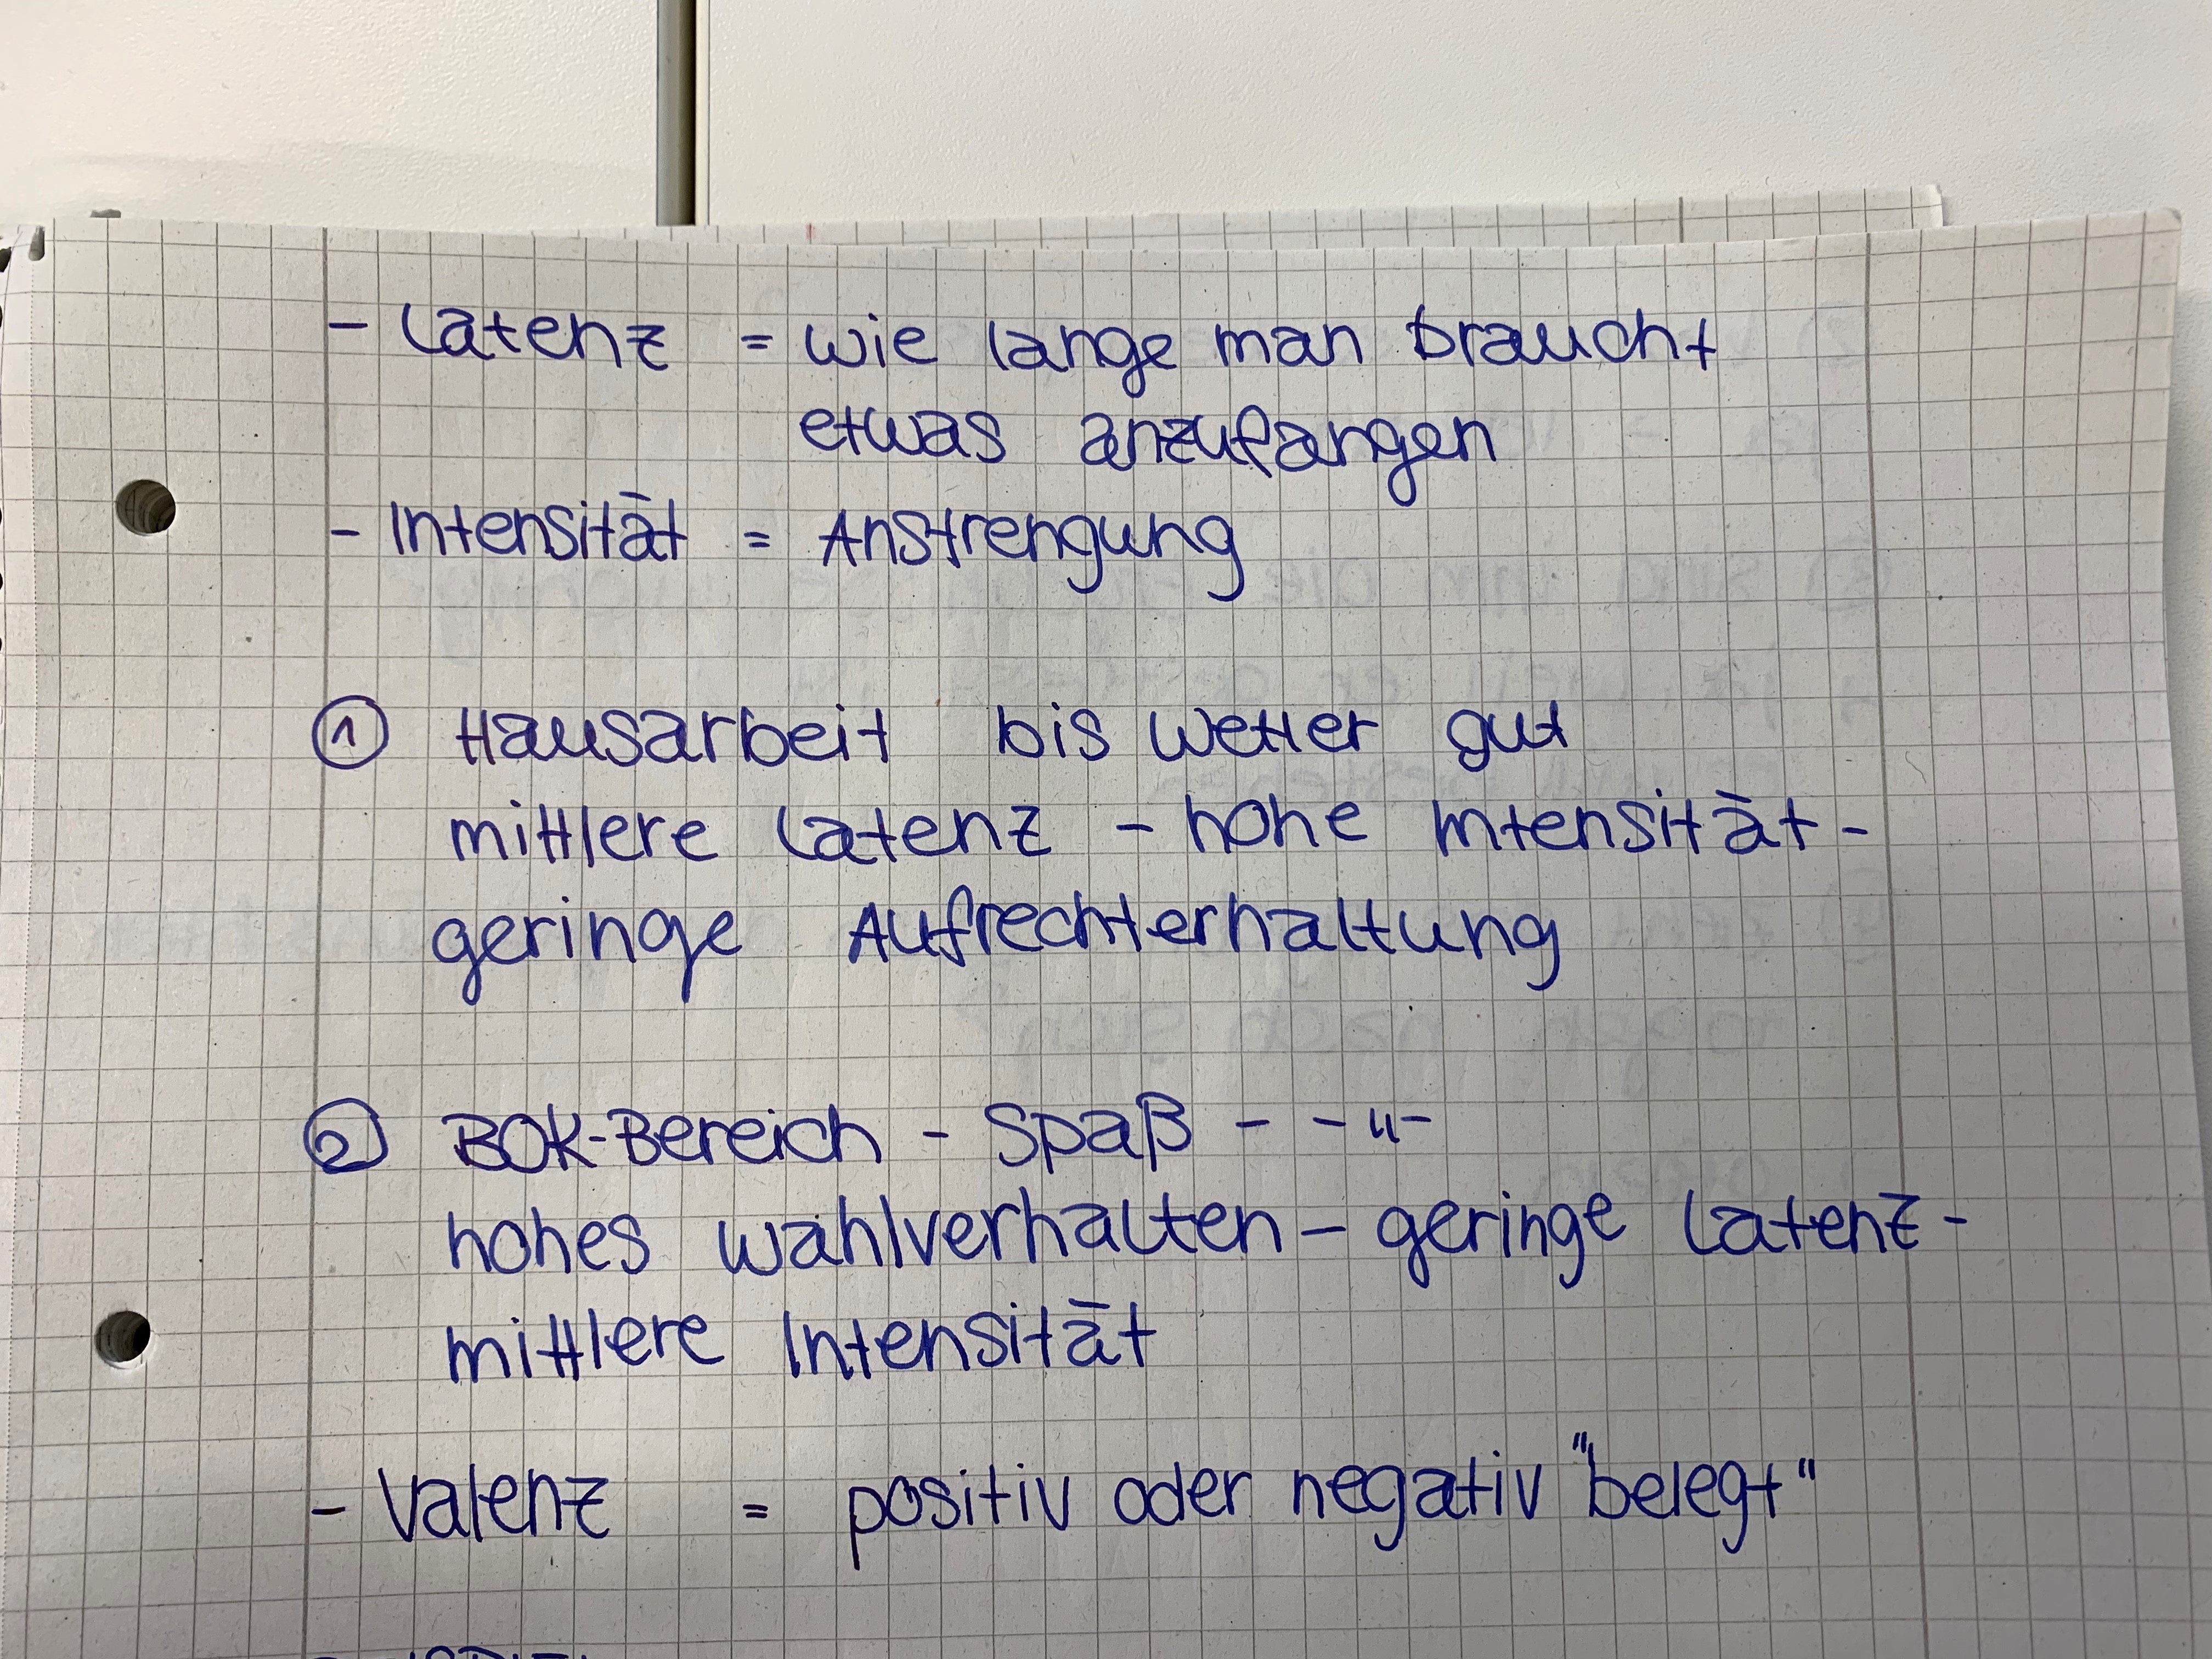 - Latenz = wie lange man braucht
etwas anzufangen
- Intensität = Anstrengung
① Hausarbeit bis Wetter gut
mittlere Latenz - hohe Intensität -
geringe Aufrechterhaltung
② BOK-Bereich - Spaß - -"-
hohes Wahlverhalten - geringe Latenz -
mittlere Intensität
- Valenz = positiv oder negativ "belegt"